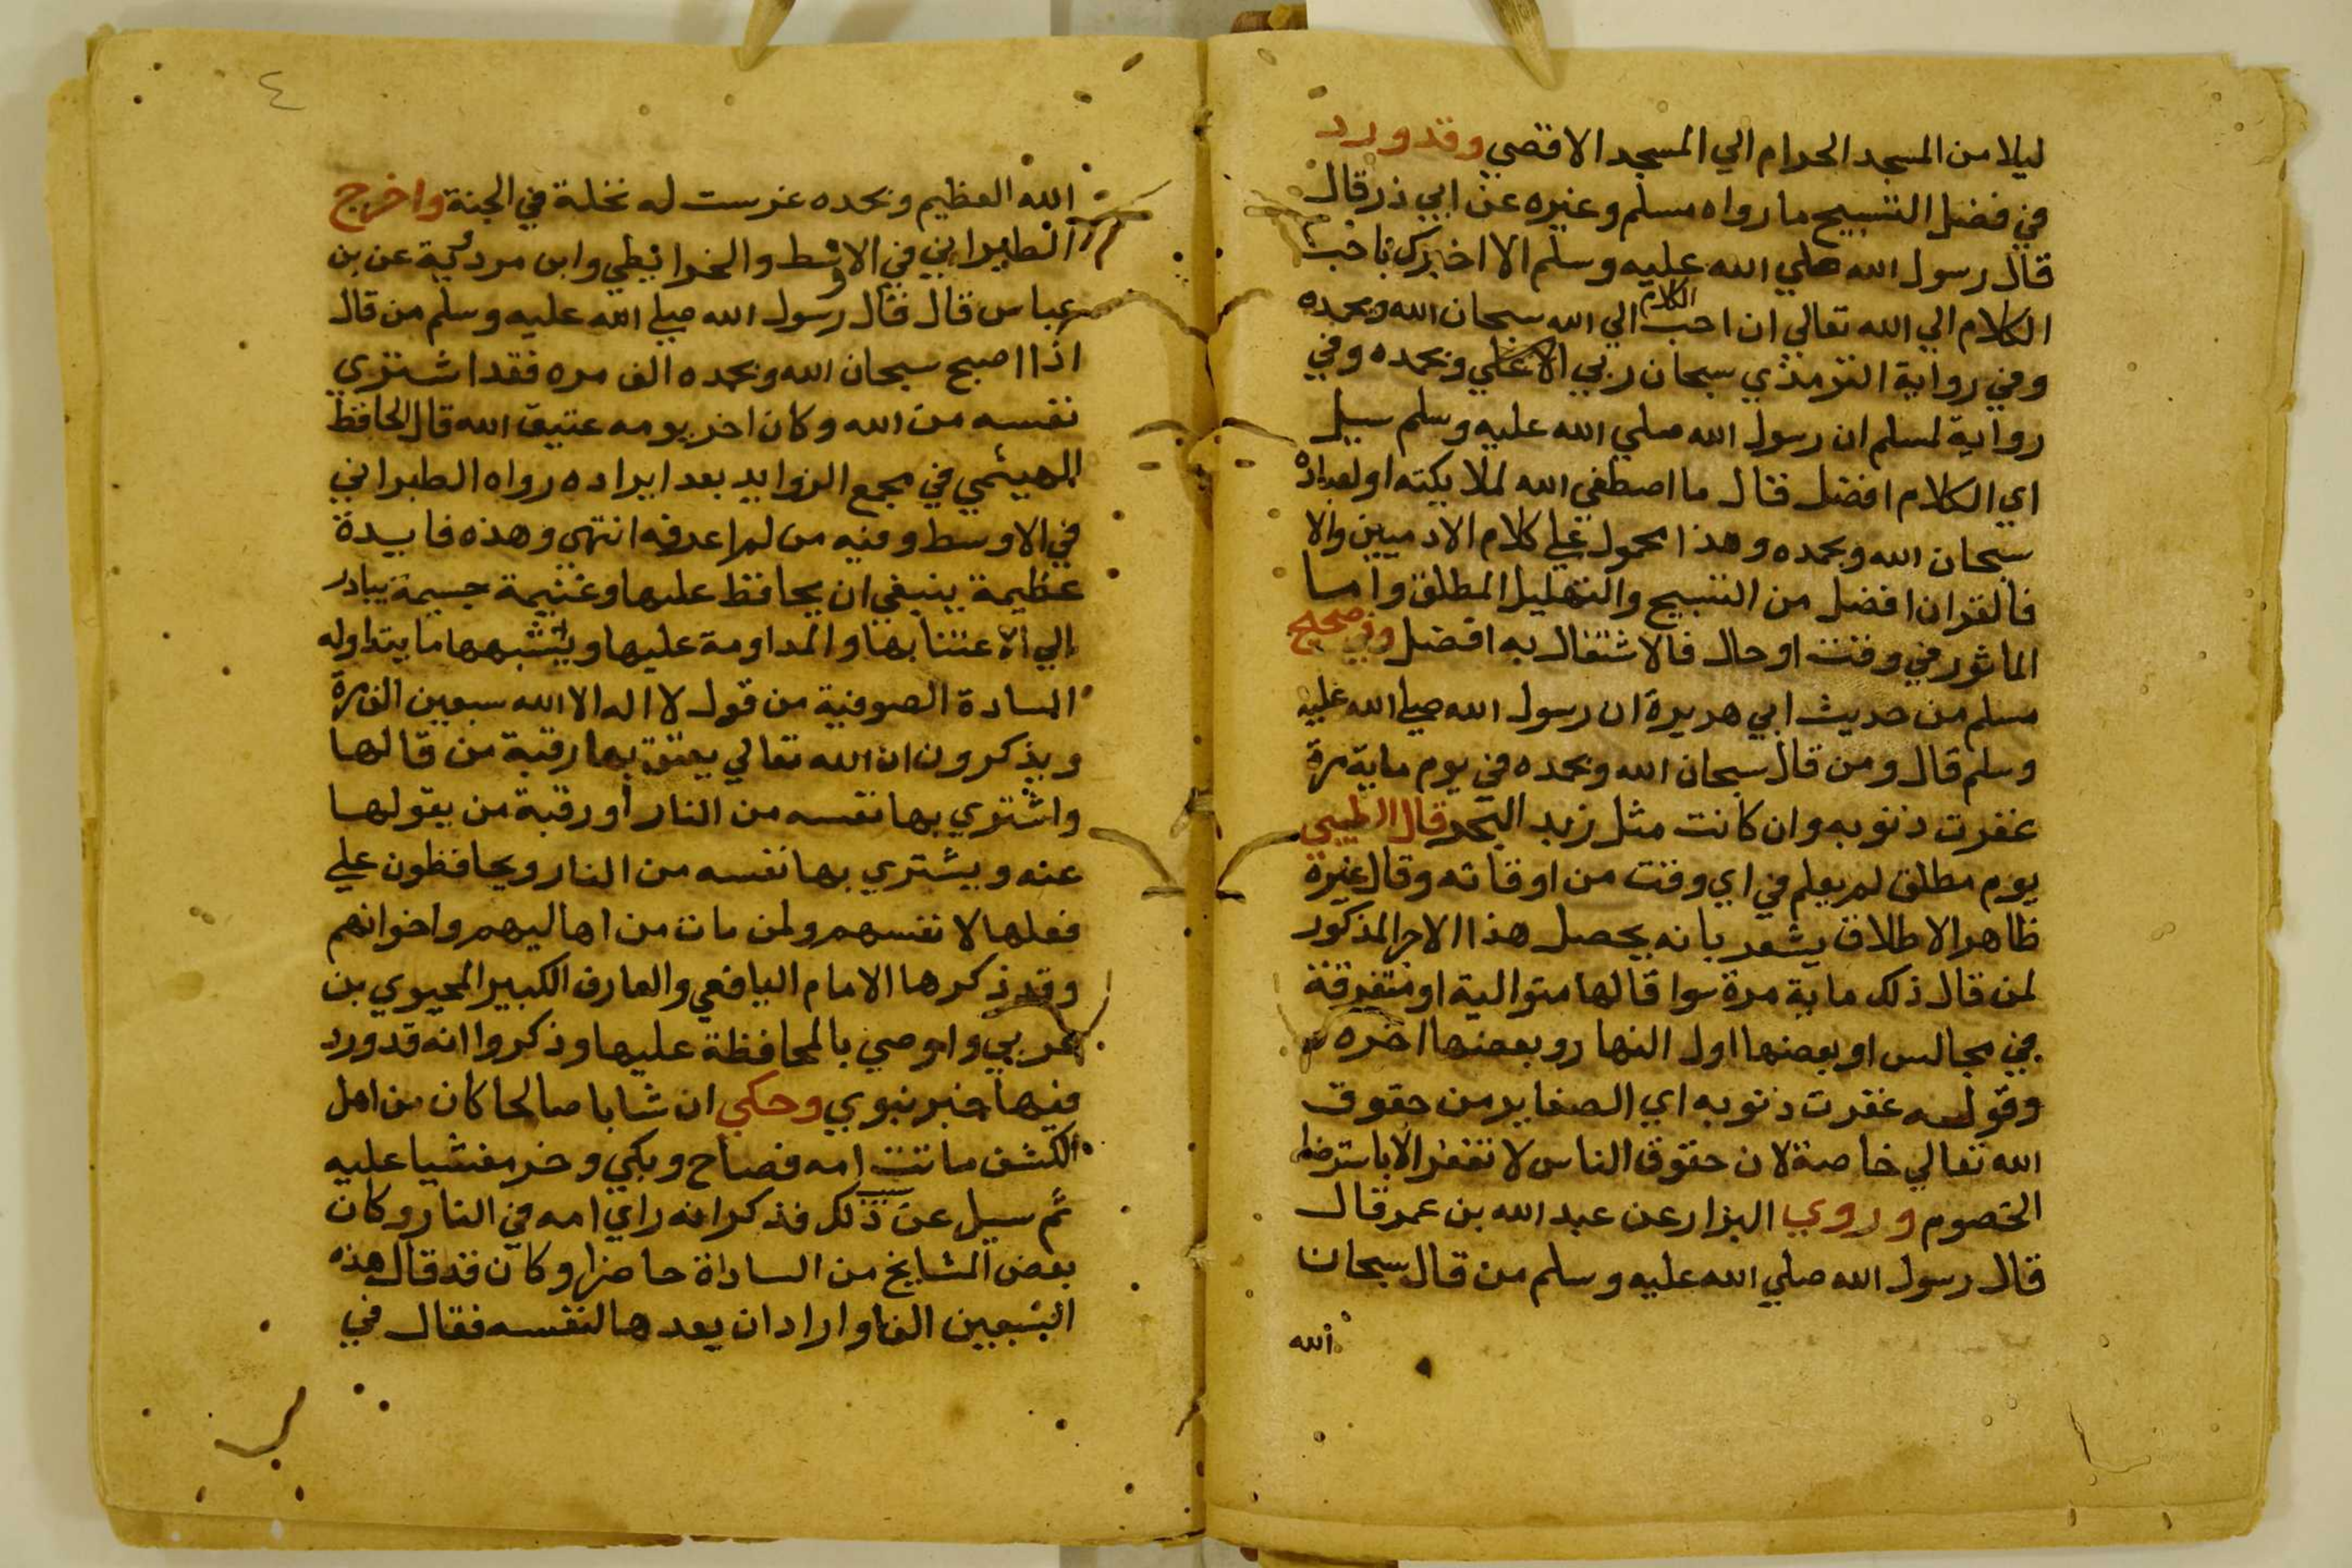 ليلا من المسجد الحرام الي المسجد الاقصي وقد ورد
في فضل التسبيح ما رواه مسلم وغيره عن ابي ذر قال
قال رسول الله صلي الله عليه وسلم الا اخبرك باحب
الكلام الي الله تعالي ان احب الكلام الي الله سبحان الله وبحمده
وفي رواية الترمذي سبحان ربي وبحمده وفي
رواية لمسلم ان رسول الله صلي الله عليه وسلم سيل
اي الكلام افضل فقال ما اصطفي الله لملايكته او لعباده
سبحان الله وبحمده وهذا محمول علي كلام الادميين والا
فالقران افضل من التسبيح والتهليل المطلق واما
الماثور في وقت او حال فالاشتغال به افضل وفي صحيح
مسلم من حديث ابي هريرة ان رسول الله صلي الله عليه
وسلم قال ومن قال سبحان الله وبحمده في يوم ماية مرة
غفرت ذنوبه وان كانت مثل زبد البحر قال الطيبي
يوم مطلق لم يعلم في اي وقت من اوقاته وقال غيره
ظاهر الاطلاق يشعر بانه يحصل هذا الاجر المذكور
لمن قال ذلك ماية مرة سوا قالها متوالية او متفرقة
في مجالس او بعضها اول النهار وبعضها اخره
وقوله غفرت ذنوبه اي الصغاير من حقوق
الله تعالي خاصة لان حقوق الناس لا تغفر الا باسترضا
الخصوم وروي البزار عن عبد الله بن عمر قال
قال رسول الله صلي الله عليه وسلم من قال سبحان
الله
٤
الله العظيم وبحمده غرست له نخلة في الجنة واخرج
الطبراني في الاوسط والخرايطي وابن مردوية عن بن
عباس قال قال رسول الله صلي الله عليه وسلم من قال
اذا اصبح سبحان الله وبحمده الف مره فقد اشتري
نفسه من الله وكان اخر يومه عتيق الله قال الحافظ
الهيثمي في مجمع الزوايد بعد ايراده رواه الطبراني
في الاوسط وفيه من لم اعرفه انتهي وهذه فايدة
عظيمة ينبغي ان يحافظ عليها وغنيمة جسيمة يبادر
الي الاعتنا بها والمداومة عليها ويشبهها ما يتداوله
السادة الصوفية من قول لا اله الا الله سبعين الف مرة
ويذكرون ان الله تعالي يعتق بها رقبة من قالها
واشتري بها نفسه من النار او رقبة من يقولها
عنه ويشتري بها نفسه من النار ويحافظون علي
فعلها لانفسهم ولمن مات من اهاليهم واخوانهم
وقد ذكرها الامام اليافعي والعارف الكبير المحيوي بن
عربي واوصي بالمحافظة عليها وذكروا انه قد ورد
فيها خبر نبوي وحكي ان شابا صالحا كان من اهل
الكشف ماتت امه فصاح وبكي وخر مغشيا عليه
ثم سيل عن سبب ذلك فذكر انه راي امه في النار وكان
بعض المشايخ من الساداة حاضرا وكان قد قال هذه
السبعين الفا واراد ان يعدها لنفسه فقال في